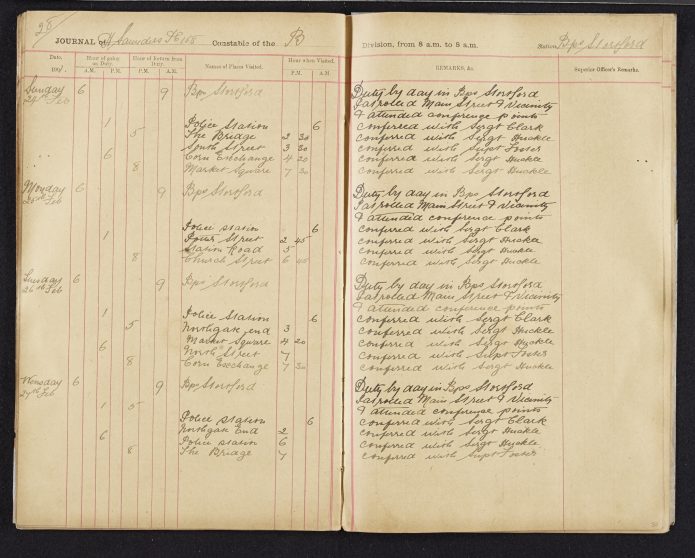 28
JOURNAL of Saunders PC 168 Constable of the B Division, from 8 a.m. to 8 a.m. Station Bps Stortford
Date. Hour of going on Duty. Hour of Return from Duty. Names of Places Visited. Hour when Visited. REMARKS, &c. Superior Officer's Remarks.
190 . A.M. P.M. A.M. P.M. P.M. A.M.
Sunday 6 9 Bps Stortford Duty by day in Bps Stortford
24th Feb Patrolled Main Street & Vicinity
& attended conference points
1 Police Station 6 conferred with Sergt Clark
5 The Bridge 2 30 conferred with Sergt Huckle
South Street 3 30 conferred with Supt Foster
6 Corn Exchange 4 20 conferred with Sergt Huckle
8 Market Square 7 30 conferred with Sergt Huckle
Monday 6 9 Bps Stortford Duty by day in Bps Stortford
25th Feb Patrolled Main Street & Vicinity
& attended conference points
Police station 6 conferred with Sergt Clark
1 Street 2 45 conferred with Sergt Huckle
Station Road 5 conferred with Sergt Huckle
8 Church Street 6 45 conferred with Sergt Huckle
Tuesday 6 9 Bps Stortford Duty by day in Bps Stortford
26th Feb Patrolled Main Street & Vicinity
& attended conference points
1 Police Station 6 conferred with Sergt Clark
5 Northgate end 3 conferred with Sergt Huckle
Market Square 4 20 conferred with Sergt Huckle
6 North Street 7 conferred with Supt Foster
8 Corn Exchange 7 30 conferred with Sergt Huckle
Wensday 6 9 Bps Stortford Duty by day in Bps Stortford
27th Feb Patrolled Main Street & Vicinity
1 5 & attended conference points
Police Station 6 conferred with Sergt Clark
6 Northgate End 2 conferred with Sergt Huckle
Police station 6 conferred with Sergt Huckle
8 The Bridge 7 conferred with Supt Foster